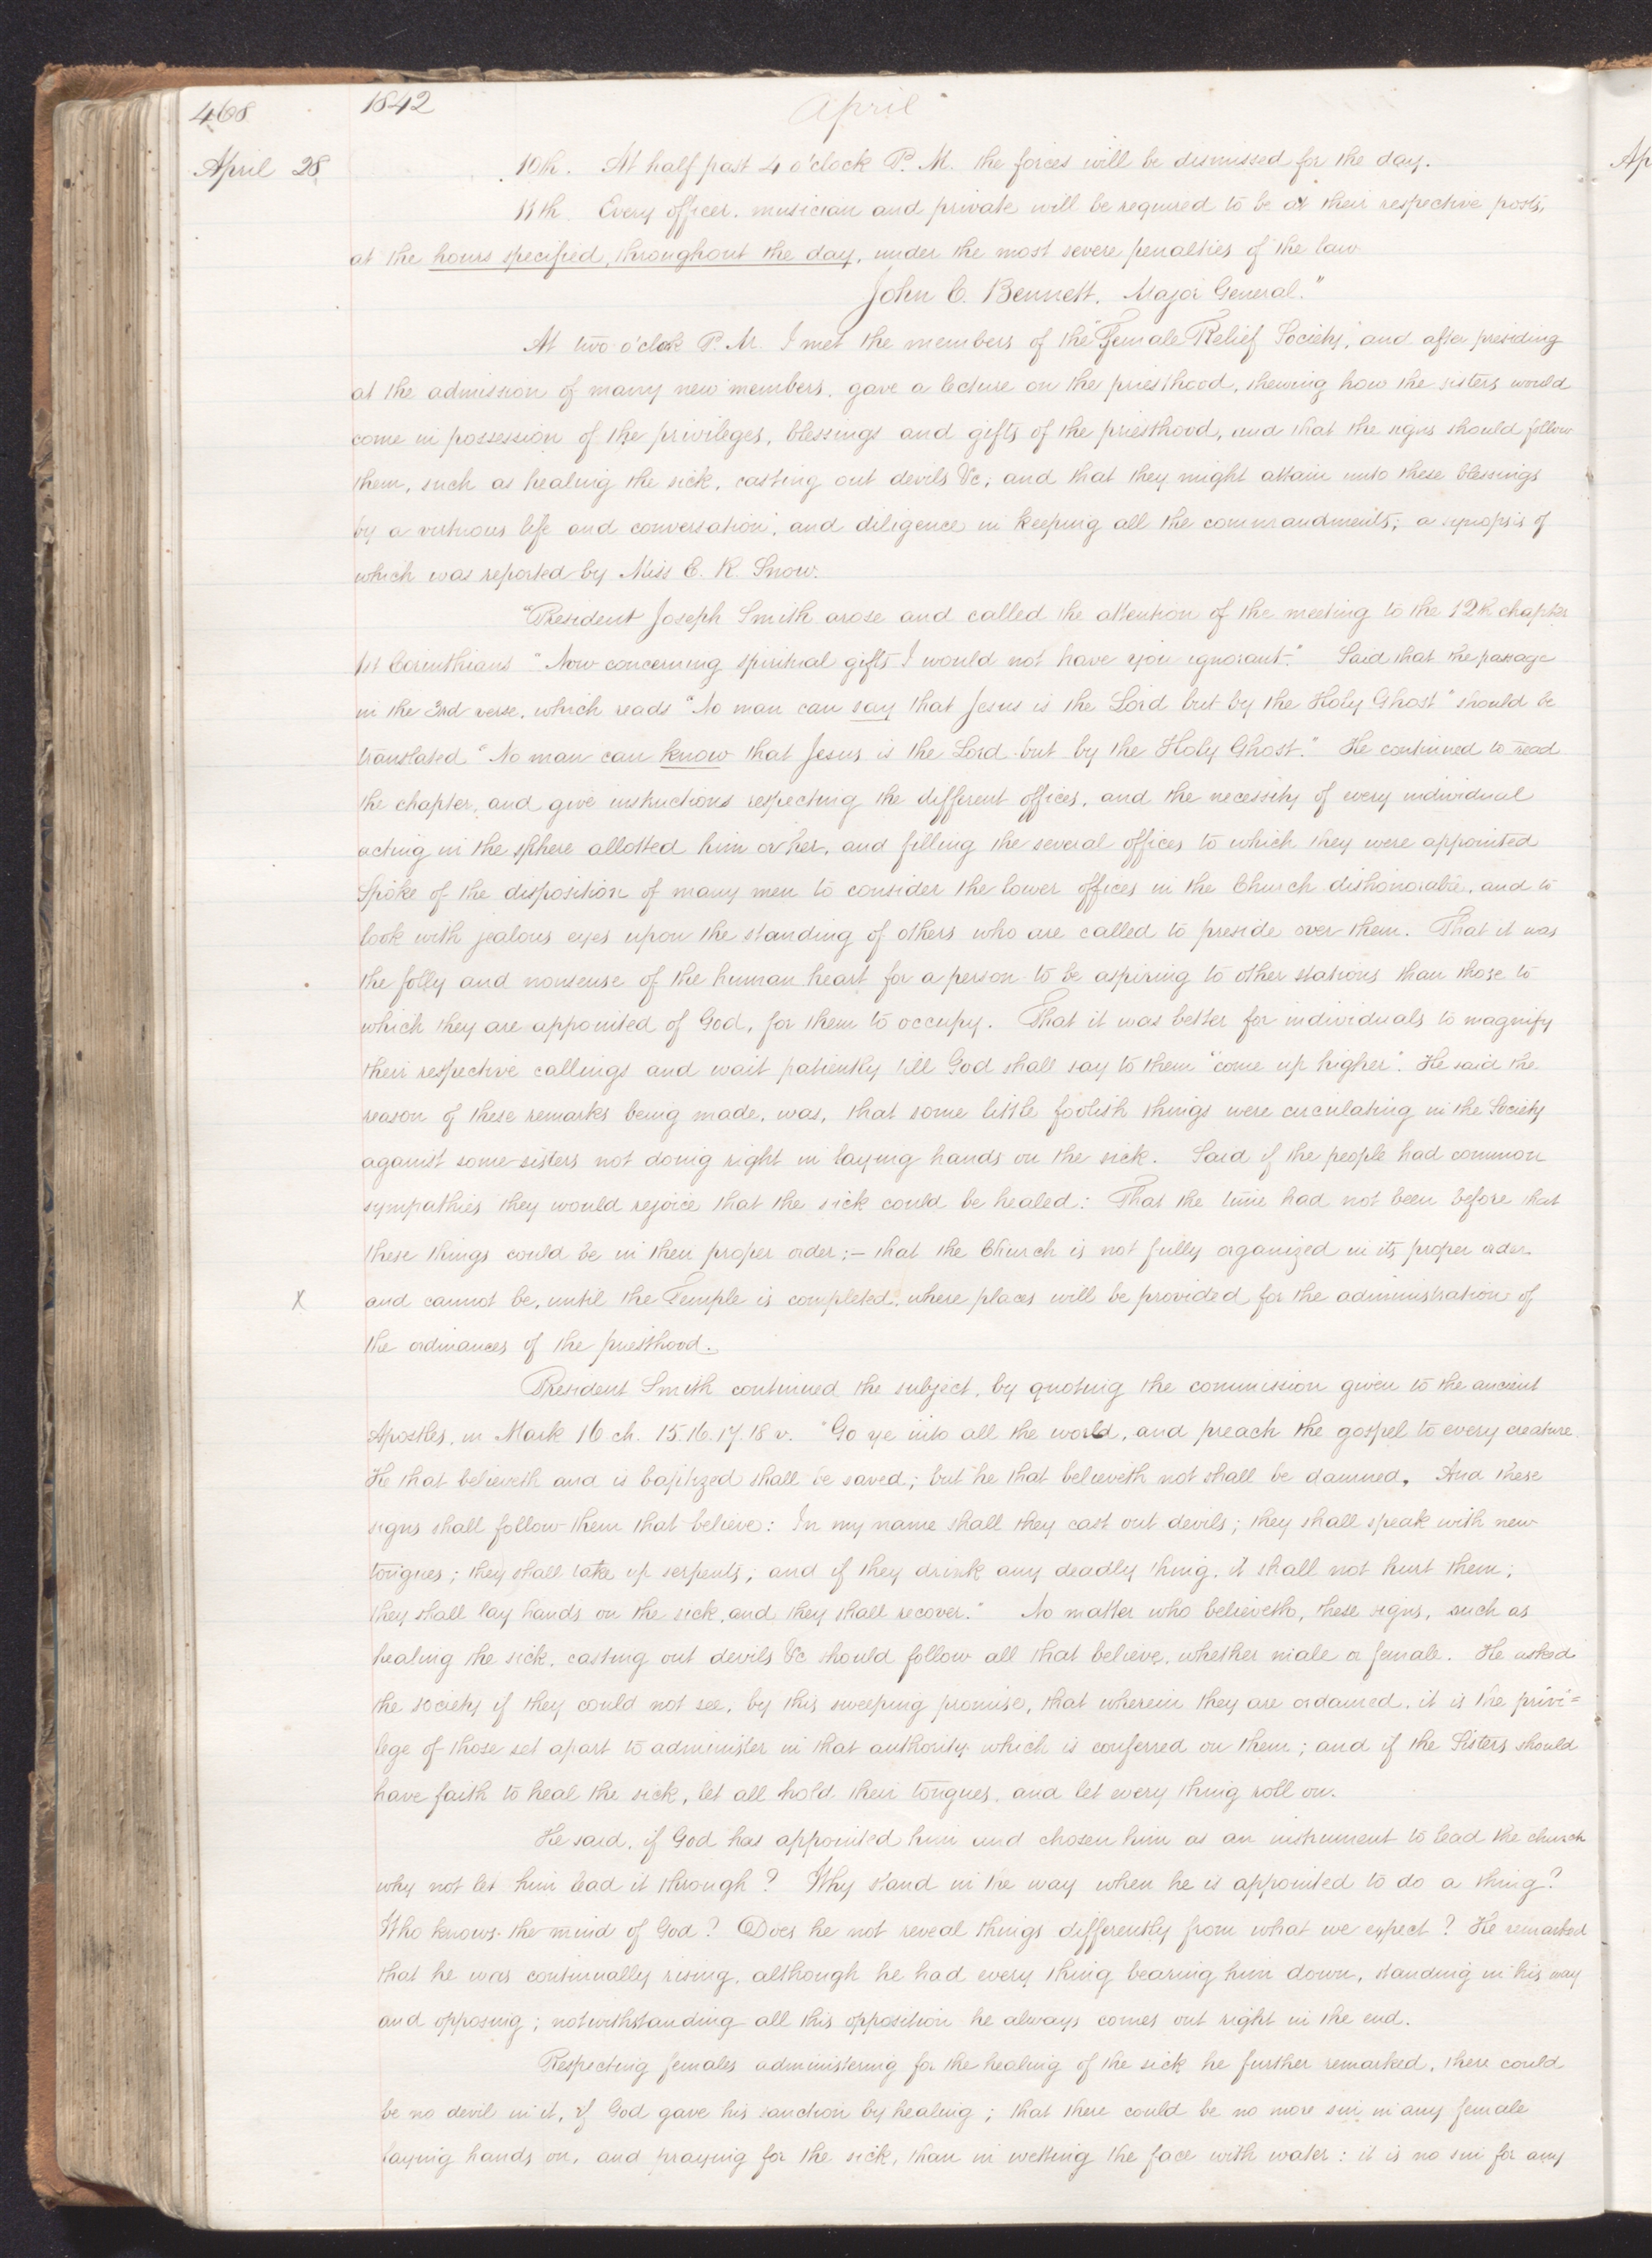 468 1842 April
April 28 10th. At half past 4 o'clock P. M. the forces will be dismissed for the day.
11th Every officer, musician and private will be required to be at their respective posts,
at the hours specified, throughout the day, under the most severe penalties of the law
John C. Bennett, Major General."
At two o'clock P. M. I met the members of the "Female Relief Society," and after presiding
at the admission of many new members, gave a lecture on the priesthood, shewing how the sisters would
come in possession of the privileges, blessings and gifts of the priesthood, and that the signs should follow
them, such as healing the sick, casting out devils &c, and that they might attain unto these blessings
by a virtuous life and conversation, and diligence in keeping all the commandments; a synopsis of
which was reported by Miss E. R. Snow.
"President Joseph Smith arose and called the attention of the meeting to the 12th chapter
1st Corinthians "Now concerning spiritual gifts I would not have you ignorant." Said that the passage
in the 3rd verse, which reads "No man can say that Jesus is the Lord but by the Holy Ghost" should be
translated "No man can know that Jesus is the Lord but by the Holy Ghost." He continued to read
the chapter, and give instructions respecting the different offices, and the necessity of every individual
acting in the sphere allotted him or her, and filling the several offices to which they were appointed
Spoke of the disposition of many men to consider the lower offices in the Church dishonorable, and to
look with jealous eyes upon the standing of others who are called to preside over them. That it was
the folly and nonsense of the human heart for a person to be aspiring to other stations than those to
which they are appointed of God, for them to occupy. That it was better for individuals to magnify
their respective callings and wait patiently till God shall say to them "come up higher". He said the
reason of these remarks being made, was, that some little foolish things were circulating in the Society
against some sisters not doing right in laying hands on the sick. Said if the people had common
sympathies they would rejoice that the sick could be healed: That the time had not been before that
these things could be in their proper order;— that the Church is not fully organized in its proper order
X and cannot be, until the Temple is completed, where places will be provided for the administration of
the ordinances of the priesthood.
President Smith continued the subject, by quoting the commission given to the ancient
Apostles, in Mark 16 ch. 15.16.17.18 v. "Go ye into all the world, and preach the gospel to every creature.
He that believeth and is baptized shall be saved; but he that believeth not shall be damned, And these
signs shall follow them that believe: In my name shall they cast out devils; they shall speak with new
tongues; they shall take up serpents; and if they drink any deadly thing, it shall not hurt them;
they shall lay hands on the sick, and they shall recover." No matter who believeth, these signs, such as
healing the sick, casting out devils &c should follow all that believe, whether male or female. He asked
the society if they could not see, by this sweeping promise, that wherein they are ordained, it is the privi=
lege of those set apart to administer in that authority which is conferred on them; and if the Sisters should
have faith to heal the sick, let all hold their tongues, and let every thing roll on.
He said, if God has appointed him and chosen him as an instrument to lead the church
why not let him lead it through? Why stand in the way when he is appointed to do a thing?
Who knows the mind of God? Does he not reveal things differently from what we expect? He remarked
that he was continually rising, although he had every thing bearing him down, standing in his way
and opposing; notwithstanding all this opposition he always comes out right in the end.
Respecting females administering for the healing of the sick he further remarked, there could
be no devil in it, if God gave his sanction by healing; that there could be no more sin in any female
laying hands on, and praying for the sick, than in wetting the face with water: it is no sin for any